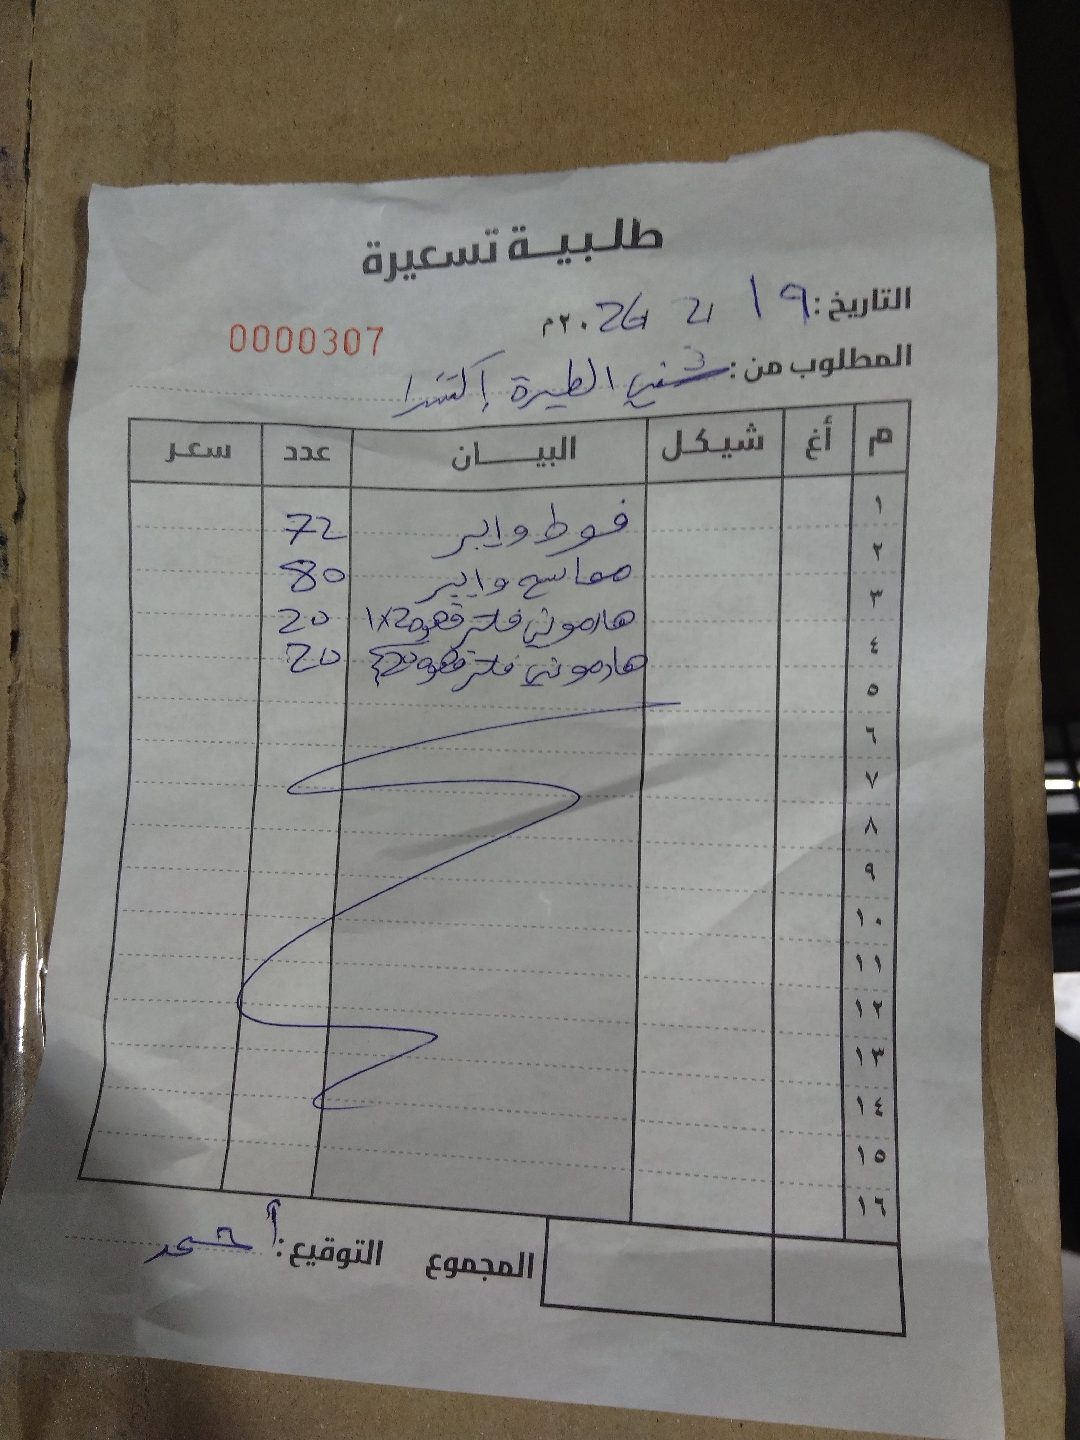 طلبية تسعيرة
التاريخ: ١٩ 2 ٢٠26م
0000307
المطلوب من: الطيرة إكسترا
م أغ شيكل البيان عدد سعر
١ فوط وايبر 72
٢ مماسح وايبر 80
٣ هارموني فلتر قهوة 1X2 20
٤ هارموني فلتر قهوة 20
٥
٦
٧
٨
٩
١٠
١١
١٢
١٣
١٤
١٥
١٦
المجموع التوقيع: أحمد